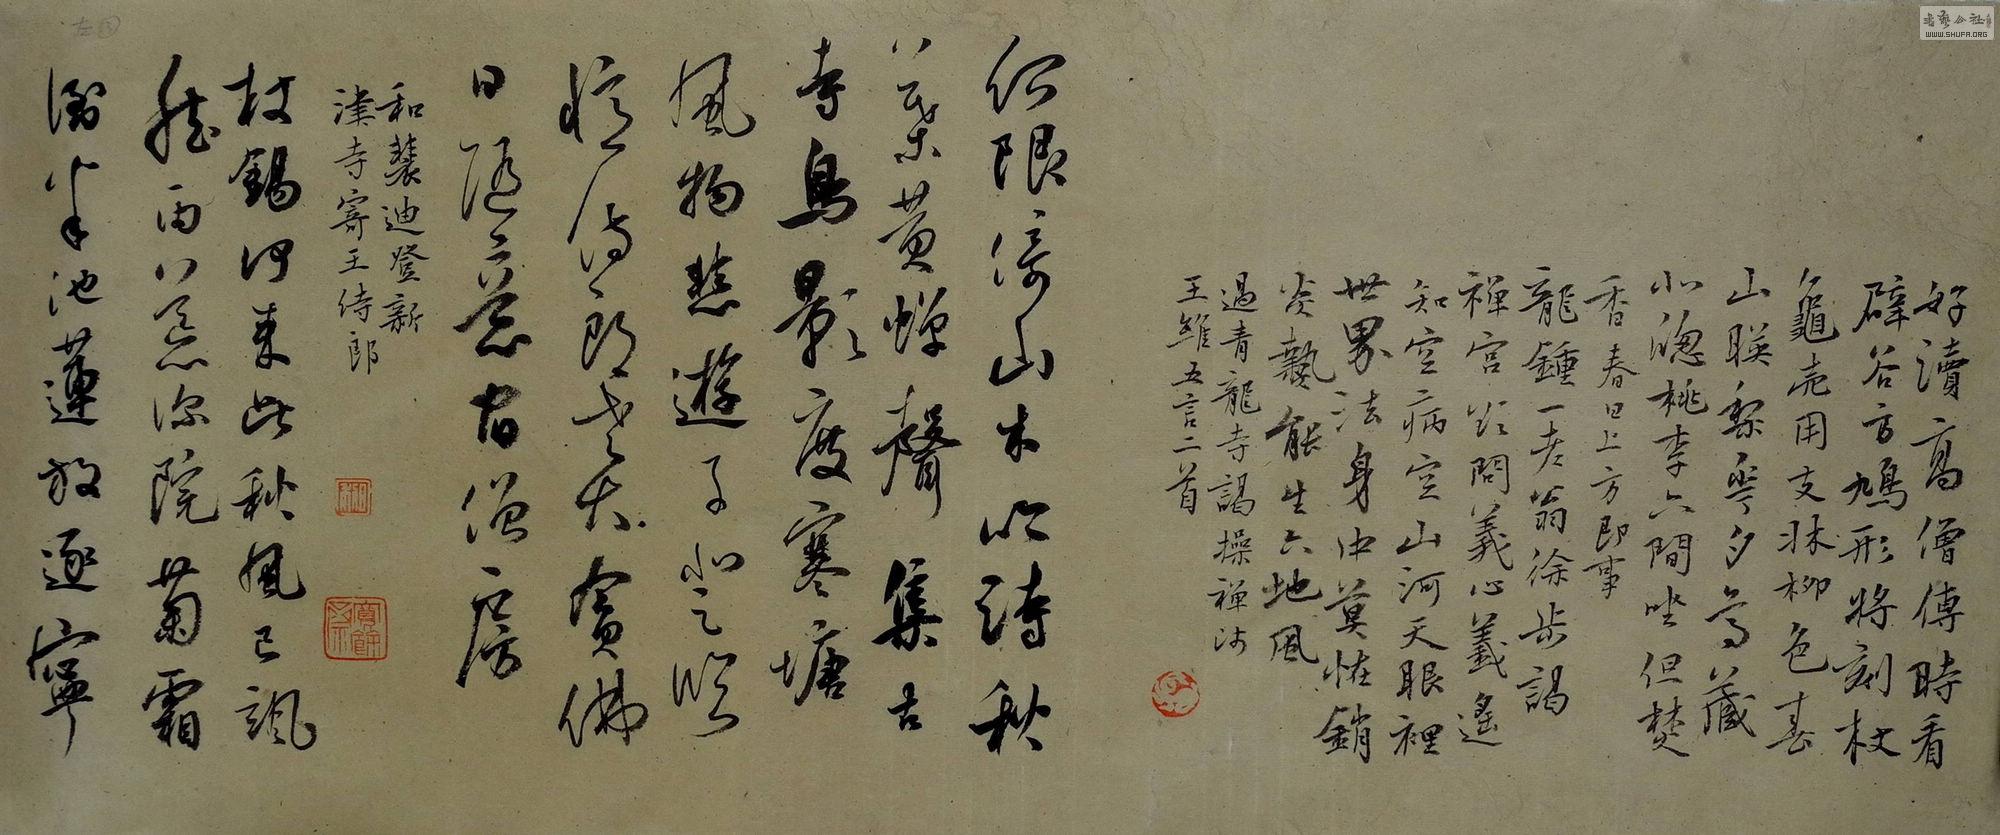 好讀高僧傳時看
辟谷方鳩形將刻杖
龜壳用支牀柳色春
山暎梨花夕鳥藏
北窓桃李下閒坐但焚
香春日上方即事
龍鍾一老翁徐步謁
禪宮欲問義心義遙
知空病空山河天眼裡
世界法身中莫怪銷
炎熱能生大地風
過青龍寺謁操禪師
王維五言二首
何限倚山木吟詩秋
葉黃蟬聲集古
寺鳥影度寒塘
風物悲遊子登臨
憶侍郎老夫貪佛
日隨意宿僧房
和裴迪登新
津寺寄王侍郎
杖錫何來此秋風已颯
然雨荒深院菊霜
倒半池蓮放逐寧
書藝公社
WWW.SHUFA.ORG